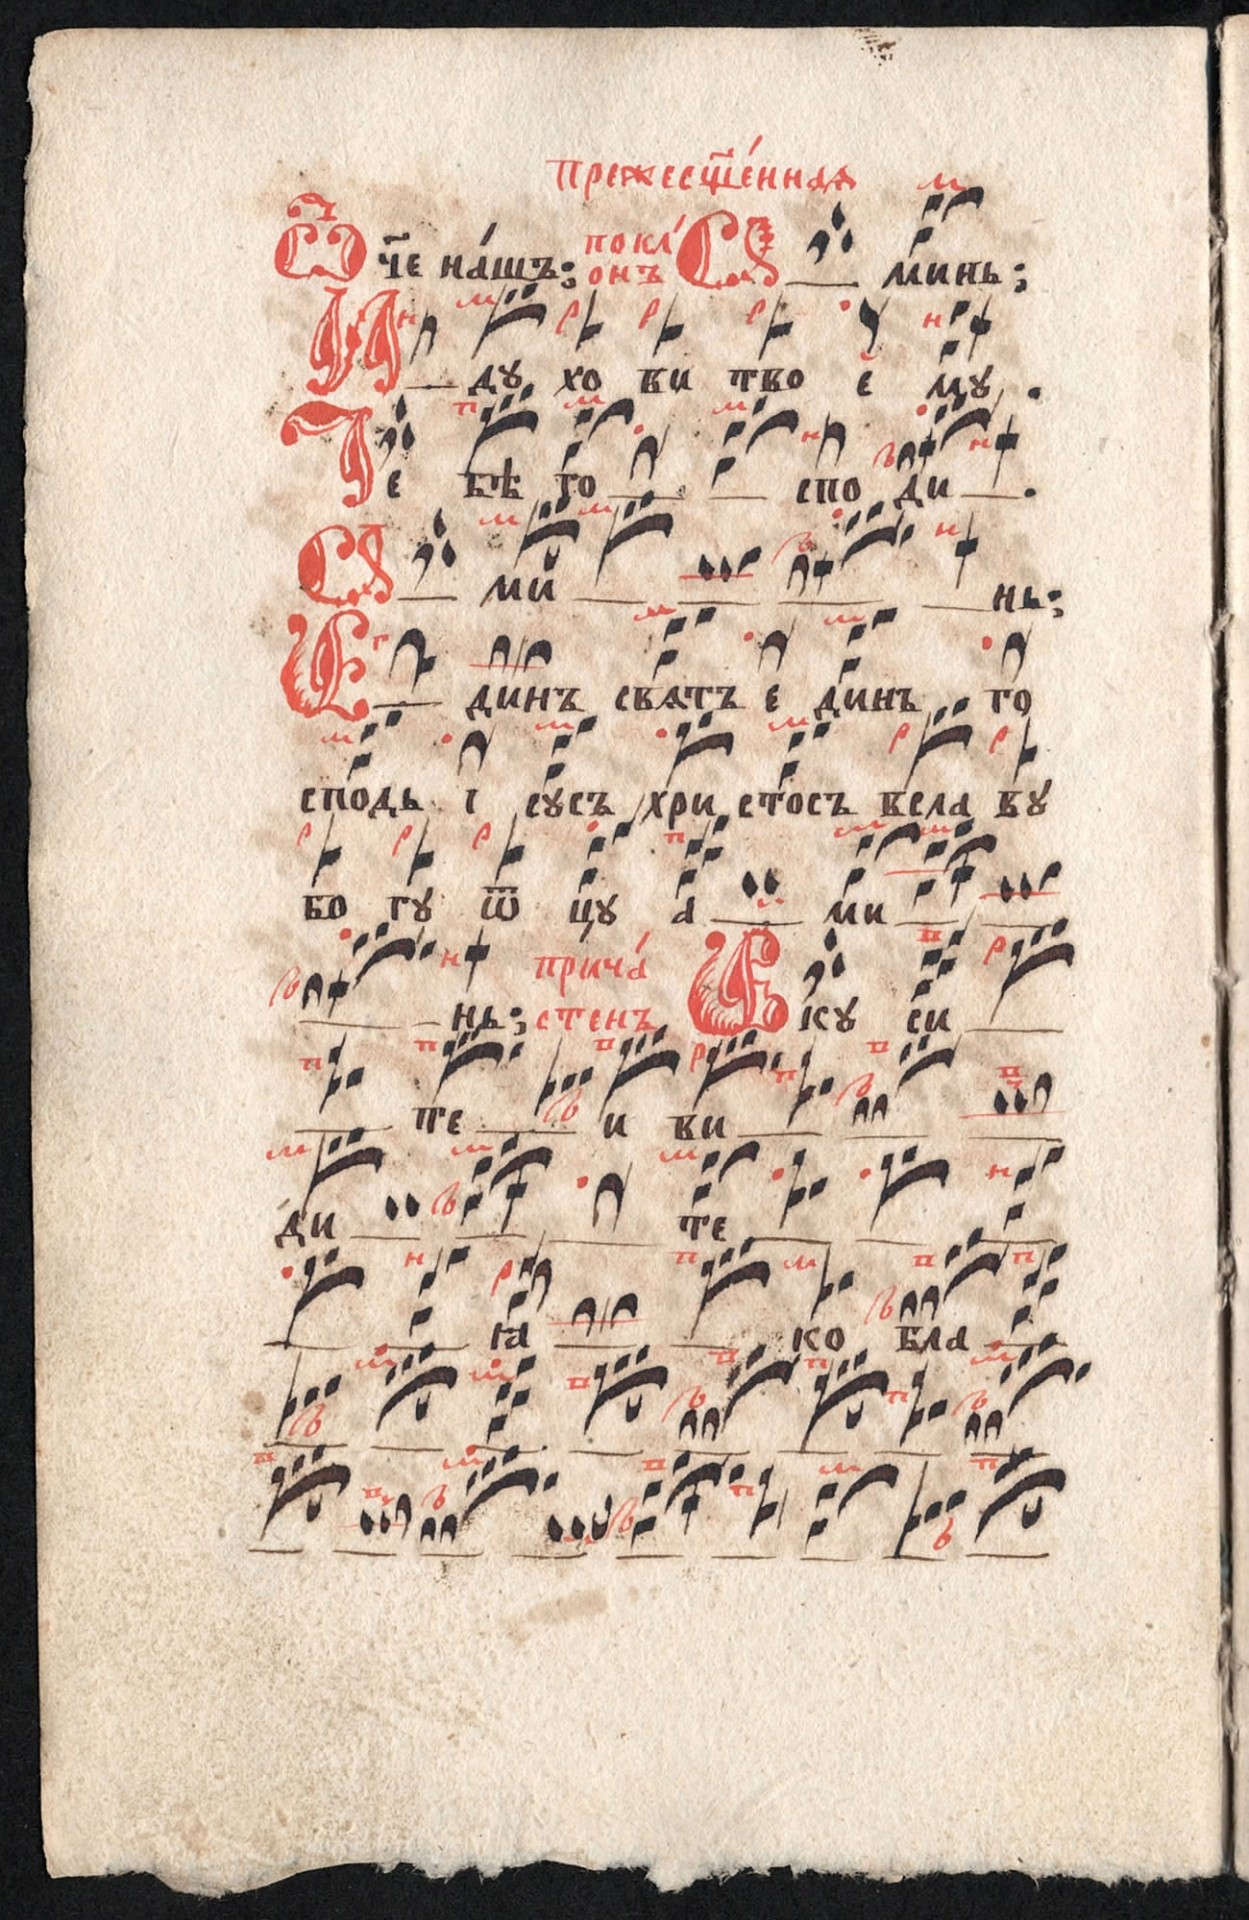 Прежесщ҃е́нная
Ѿч҃е на́шъ; покл́онъ А минь;
И дꙋ хо ви тво е мꙋ .
Те бѣ го спо ди .
А ми нь;
Е динъ святъ е динъ го
сподь і сꙋсъ хри стосъ всла вꙋ
бо гꙋ ѿ цꙋ а ми
нь; прича́стенъ В кꙋ си
те и ви
ди те
ꙗ ко бла